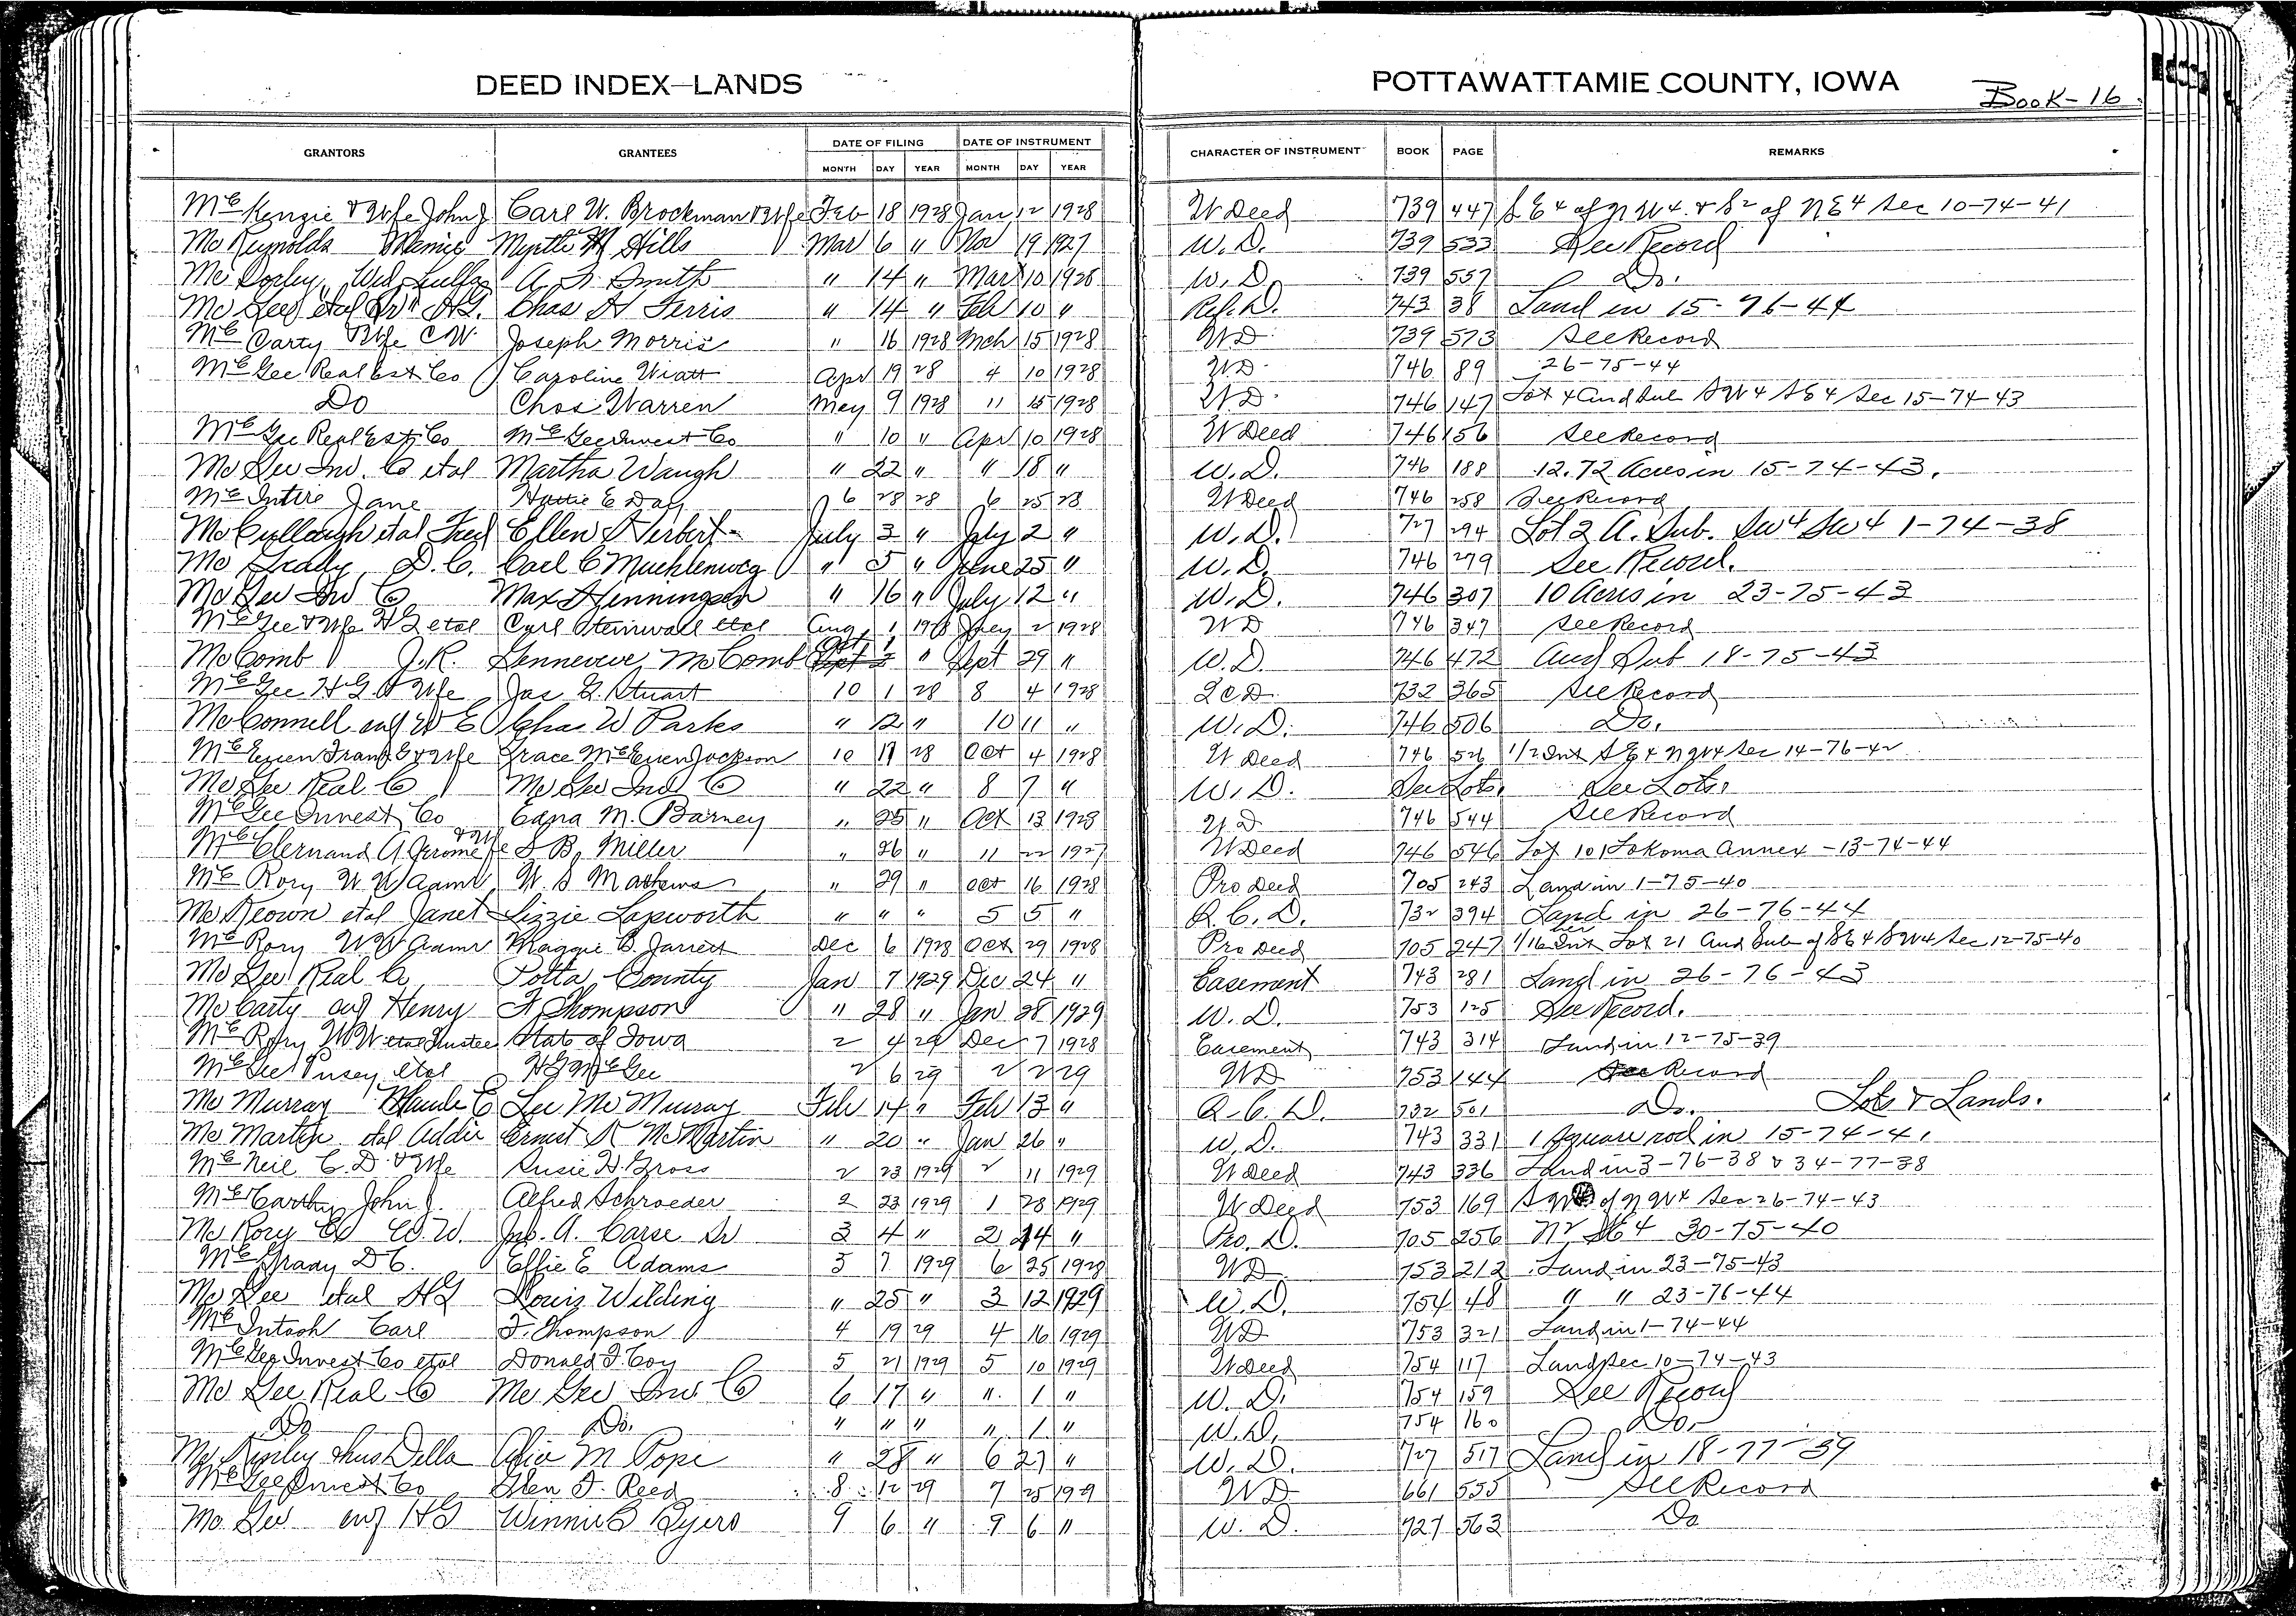 DEED INDEX—LANDS
POTTAWATTAMIE COUNTY, IOWA
Book-16
GRANTORS GRANTEES DATE OF FILING DATE OF INSTRUMENT CHARACTER OF INSTRUMENT BOOK PAGE REMARKS
MONTH DAY YEAR MONTH DAY YEAR
McKenzie & Wife John J. Carl W. Brockman & Wife Feb 18 1928 Jan 12 1928 W Deed 739 447 S E 4 of N W 4 & S 2 of N E 4 Sec 10-74-41
Mc Reynolds Myrtle M Hills Mar 6 " Nov 19 1927 W. D. 739 533 See Record
Mc Smith " 14 " Mar 10 1928 W. D. 739 557 Do.
Mc Gee etal H.G. Chas H Ferris " 14 " Feb 10 " Ref. D. 743 38 Land in 15-76-44
McCarty & Wife C W. Joseph Morris " 16 1928 Mch 15 1928 W D 739 573 See Record
McGee Real Est Co Caroline Wiatt Apr 19 28 4 10 1928 W D 746 89 26-75-44
Do Chas Warren May 9 1928 11 15 1928 W D 746 147 Lot 4 Aud Sub S W 4 S E 4 Sec 15-74-43
McGee Real Est Co McGee Invest Co " 10 " Apr 10 1928 W Deed 746 156 See Record
Mc Gee Inv. Co etal Martha Waugh " 22 " " 18 " W. D. 746 188 12.72 Acres in 15-74-43.
McIntire Jane Hattie E Day 6 28 28 6 25 28 W Deed 746 258 See Record
McCullough etal Fred Ellen Herbert July 3 " July 2 " W. D. 727 294 Lot 2 A. Sub. SW4 SW4 1-74-38
Mc Grady D. C. Carl C Muehlenweg " 5 " June 25 " W. D. 746 279 See Record.
Mc Gee Inv Co Max Henningsen " 16 " July 12 " W. D. 746 307 10 Acres in 23-75-43
McGee & Wife H G etal Carl Steinwall etal Aug 1 1928 July 2 1928 W D 746 347 See Record
McComb J. R. Gennevive McComb Oct 1 " Sept 29 " W. D. 746 472 Aud Sub 18-75-43
McGee H G & Wife Jas G. Stuart 10 1 28 8 4 1928 Q C D 732 365 See Record
McConnell W E Chas W Parks " 12 " 10 11 " W. D. 746 506 Do.
McEwen Frank E & Wife Grace McEwen Jackson 10 17 28 Oct 4 1928 W Deed 746 526 1/2 Int S E 4 N W 4 Sec 14-76-42
Mc Gee Real Co Mc Gee Ind Co " 22 " 8 7 " W. D. See Lots. See Lots.
McGee Invest Co Edna M. Barney " 25 " Oct 13 1928 W D 746 544 See Record
McClernand A Jerome & Wife S B. Miller " 26 " 11 22 1927 W Deed 746 546 Lot 101 Tokoma Annex - 13-74-44
McRory W W Admr W. S Mathews " 29 " Oct 16 1928 Pro Deed 705 243 Land in 1-75-40
McKeown etal Janet Lizzie Lapworth " " " 5 5 " Q. C. D. 732 394 Land in 26-76-44
McRory W W Admr Maggie B. Jarrett Dec 6 1928 Oct 29 1928 Pro Deed 705 247 1/16 Int Lot 21 Aud Sub of S E 4 S W 4 Sec 12-75-40
Mc Gee Real Co Potta County Jan 7 1929 Dec 24 " Easement 743 281 Land in 26-76-43
McCarty Henry F. Thompson " 28 " Jan 28 1929 W. D. 753 125 See Record.
McRory W W etal Trustee State of Iowa 2 4 29 Dec 7 1928 Easement 743 314 Land in 12-75-39
McGee Pusey etal H G McGee 2 6 29 2 2 29 W D 753 144 See Record
Mc Murray Maude E Lee Mc Murray Feb 14 " Feb 13 " Q. C. D. 732 501 Do. Lots & Lands.
Mc Martin etal Addie Ernest R McMartin " 20 " Jan 26 " W. D. 743 331 1 Square rod in 15-74-41
McNeil C. D & Wife Susie H. Gross 2 23 1929 2 11 1929 W Deed 743 336 Land in 3-76-38 & 34-77-38
McCarthy John J. Alfred Schroeder 2 23 1929 1 28 1929 W Deed 753 169 S W 4 of N W 4 Sec 26-74-43
Mc Rory W. W. Jno. A. Carse Sr 3 4 " 2 14 " Pro. D. 705 256 N2 SE4 30-75-40
McGrady D C. Effie E Adams 3 7 1929 6 25 1928 W D 753 212 Land in 23-75-43
Mc Gee etal H G Louis Wilding " 25 " 3 12 1929 W. D. 754 48 " " 23-76-44
McIntosh Carl F. Thompson 4 19 29 4 16 1929 W D 753 321 Land in 1-74-44
McGee Invest Co etal Donald F. Coy 5 21 1929 5 10 1929 W Deed 754 117 Land Sec 10-74-43
Mc Gee Real Co Mc Gee Inv Co 6 17 " " 1 " W. D. 754 159 See Record
Do Do. " " " " 1 " W. D. 754 160 Do.
Della M Pope " 28 " 6 27 " W. D. 727 517 Land in 18-77-39
McGee Invest Co Glen F. Reed 8 12 29 7 25 1929 W D 661 555 See Record
Mc Gee H G Winnie B Byers 9 6 " 9 6 " W. D. 727 563 Do